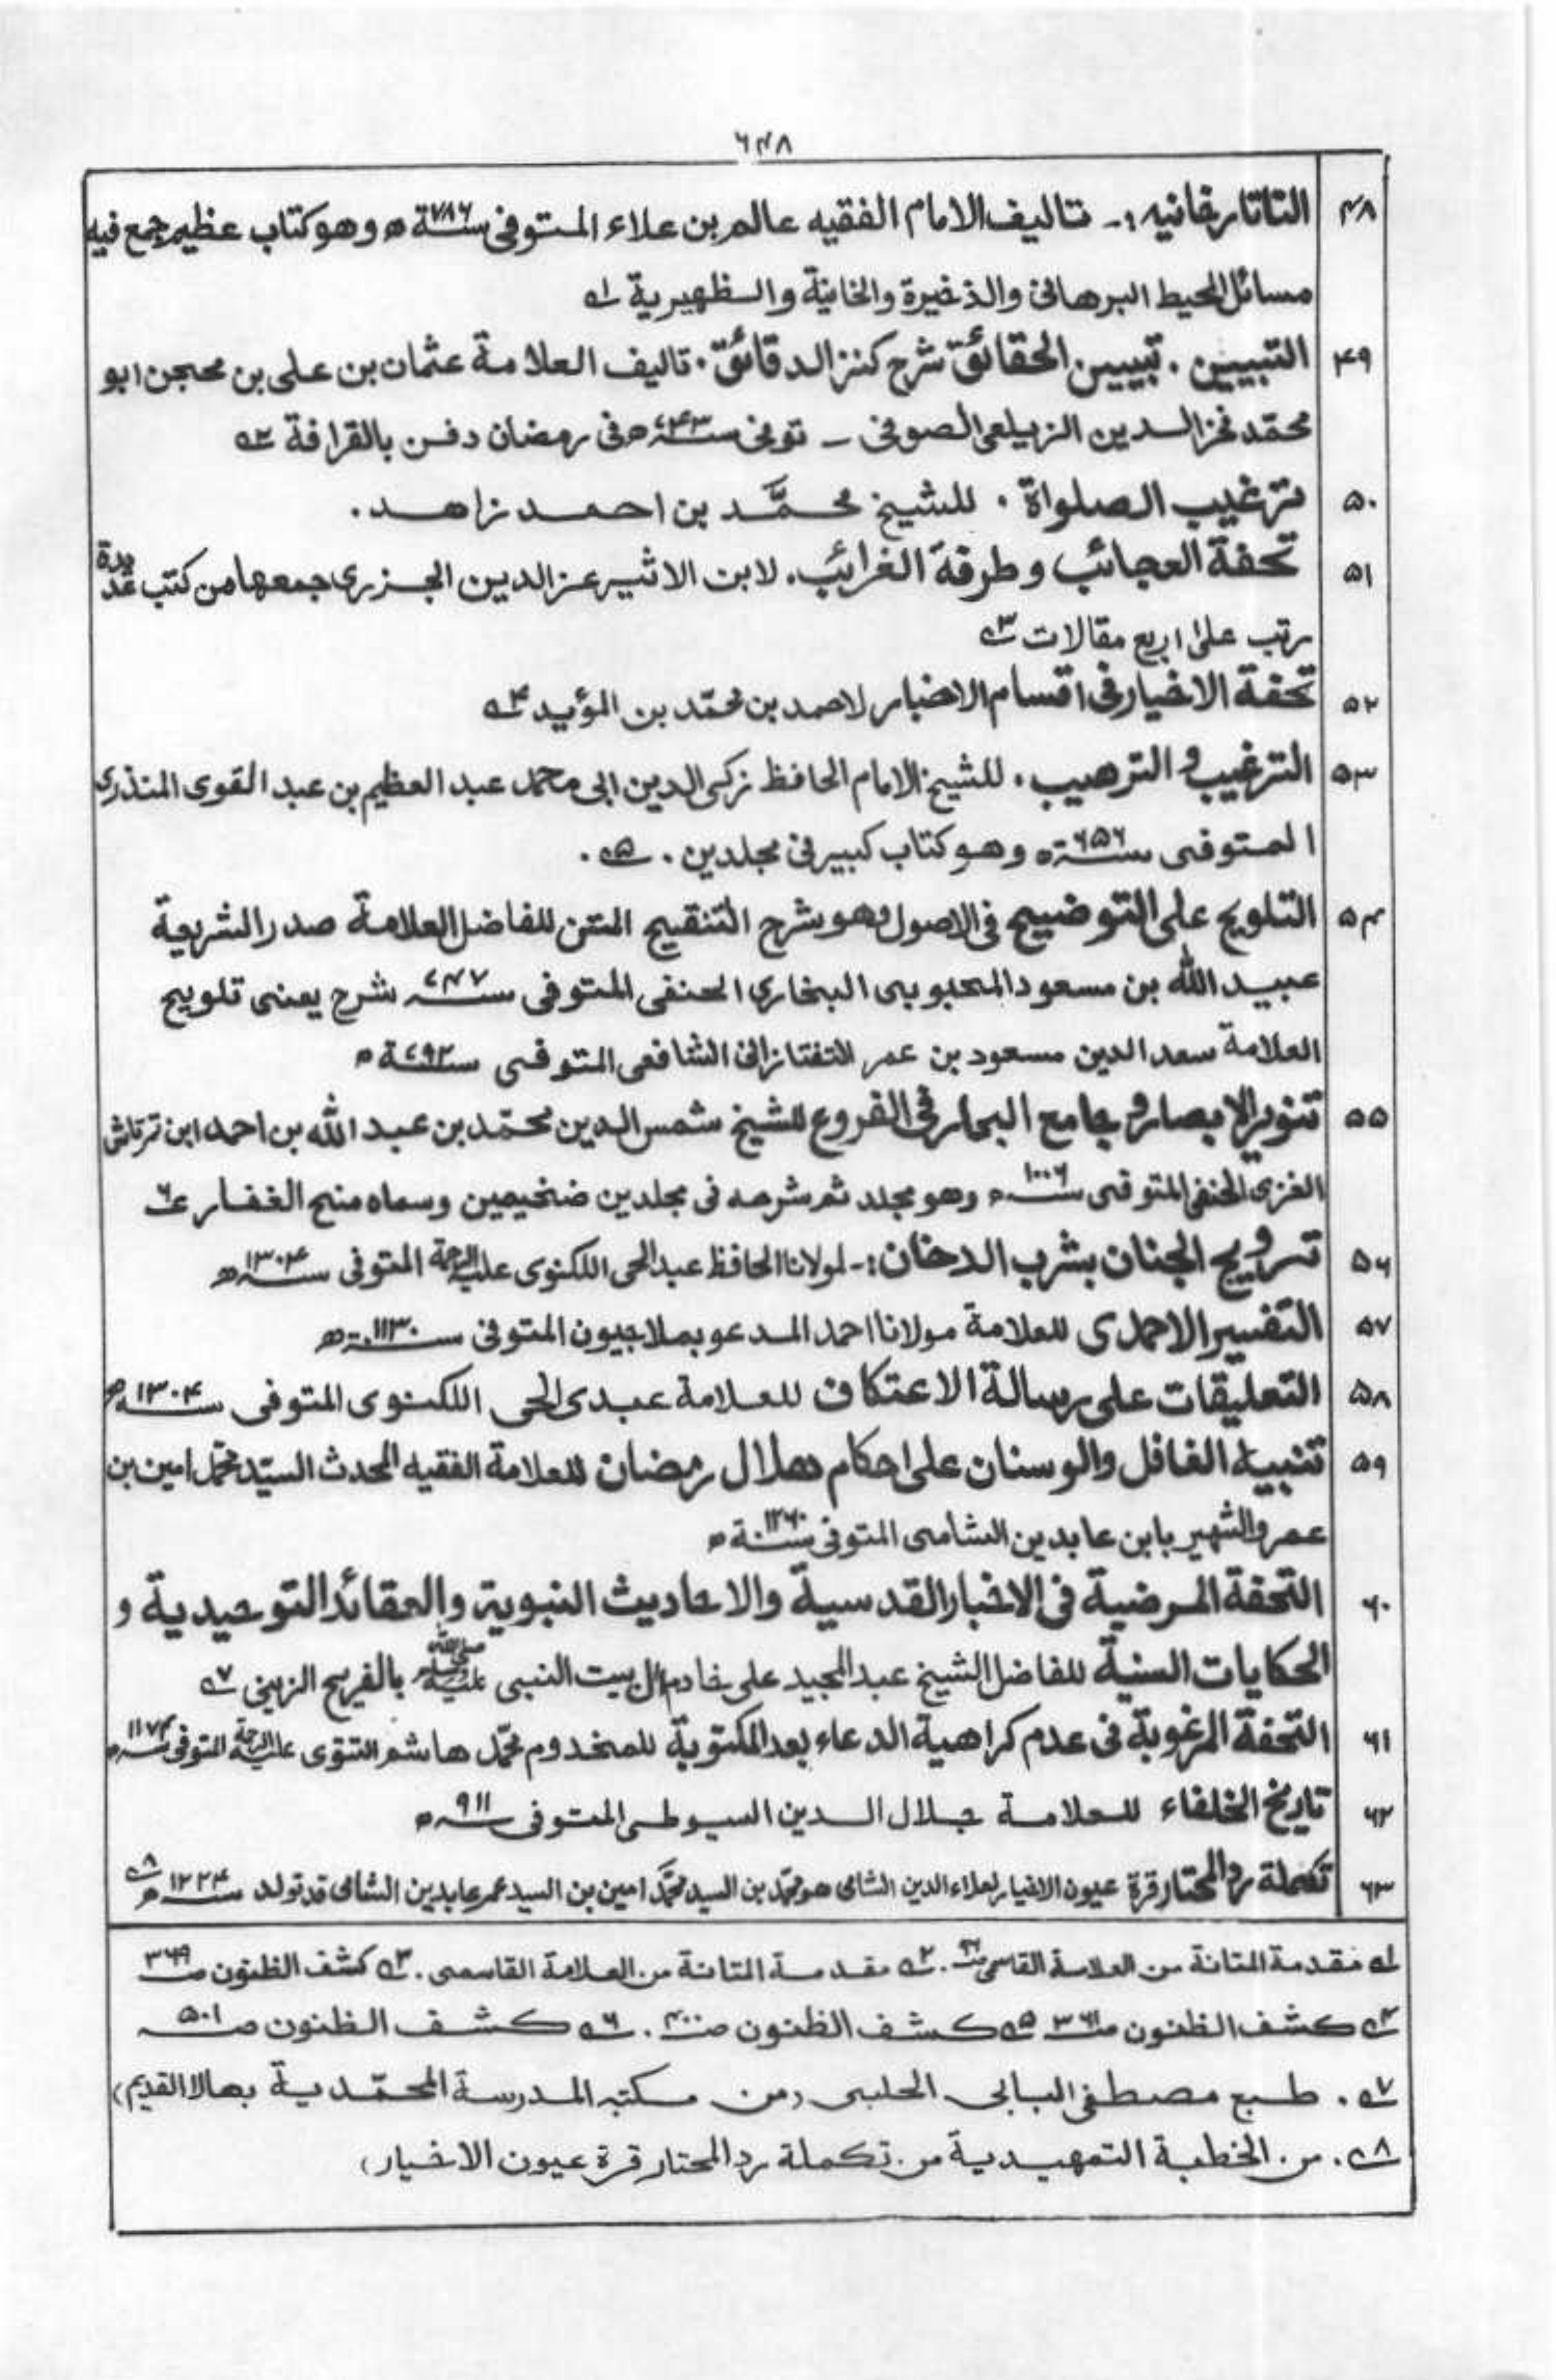 ۶۴۸
۴۸ التاتارخانيه :- تاليف الامام الفقيه عالم بن علاء المتوفى سنة ۷۸۶ ه وهو كتاب عظيم جمع فيه
مسائل المحيط البرهانى والذخيرة والخانية والظهيرية ۱ه
۴۹ التبيين . تبيين الحقائق شرح كنز الدقائق . تاليف العلامة عثمان بن على بن محجن ابو
محمّد فخر الدين الزيلعى الصوفى ـ توفى سنة ۷۴۳ ه فى رمضان دفن بالقرافة ۲ه
۵۰ ترغيب الصلواة . للشيخ محمَّد بن احمد زاهد .
۵۱ تحفة العجائب وطرفة الغرائب . لابن الاثير عز الدين الجزرى جمعها من كتب عديدة
رتب على اربع مقالات ۳ه
۵۲ تحفة الاخيار فى اقسام الاخبار لاحمد بن محمّد بن المؤيد ۴ه
۵۳ الترغيب و الترهيب . للشيخ الامام الحافظ زكى الدين ابى محمد عبد العظيم بن عبد القوى المنذرى
المتوفى سنة ۶۵۶ ه وهو كتاب كبير فى مجلدين . ۵ه .
۵۴ التلويح على التوضيح فى الاصول وهو شرح التنقيح المتن للفاضل العلامة صدر الشريعة
عبيد الله بن مسعود المحبوبى البخارى الحنفى المتوفى سنه ۷۴۷ شرح يعنى تلويح
العلامة سعد الدين مسعود بن عمر التفتازانى الشافعى المتوفى سنة ۷۹۲ ه
۵۵ تنوير الابصار و جامع البحار فى الفروع للشيخ شمس الدين محمّد بن عبد الله بن احمد ابن ترتاش
الغزى الحنفى المتوفى سنه ۱۰۰۶ ه وهو مجلد ثم شرحه فى مجلدين ضخيمين وسماه منح الغفار ۶ه
۵۶ ترويح الجنان بشرب الدخان :- لمولانا الحافظ عبد الحى اللكنوى عليه الرحمة المتوفى سنه ۱۳۰۴ ه
۵۷ التفسير الاحمدى للعلامة مولانا احمد المدعو بملا جيون المتوفى سنة ۱۱۳۰ ه
۵۸ التعليقات على رسالة الاعتكاف للعلامة عبدى الحى اللكنوى المتوفى سنه ۱۳۰۴ ه
۵۹ تنبيه الغافل والوسنان على احكام هلال رمضان للعلامة الفقيه المحدث السيّد محمّد امين بن
عمر والشهير بابن عابدين الشامى المتوفى سنة ۱۲۶۰ ه
۶۰ التحفة المرضية فى الاخبار القدسية والاحاديث النبوية والعقائد التوحيدية و
الحكايات السنية للفاضل الشيخ عبد المجيد على خادم ال بيت النبى صلى الله عليه وسلم بالفريح الزينى ۷ه
۶۱ التحفة المرغوبة فى عدم كراهية الدعاء بعد المكتوبة للمخدوم محمّد هاشم التتوى عليه الرحمة المتوفى سنه ۱۱۷۴ ه
۶۲ تاريخ الخلفاء للعلامة جلال الدين السيوطى المتوفى سنه ۹۱۱ ه
۶۳ تكملة رد المحتار قرة عيون الاخيار لعلاء الدين الشامى هو محمّد بن السيد محمَّد امين بن السيد عمر عابدين الشامى قد تولد سنه ۱۲۲۴ ه ۸ه
۱ه مقدمة المتانة من العلامة القاسمى . ۲ه مقدمة المتانة من العلامة القاسمى . ۳ه كشف الظنون صـ ۳۶۹
۴ه كشف الظنون صـ ۳۶۱ ۵ه كشف الظنون صـ ۴۰۰ . ۶ه كشف الظنون صـ ۵۰۱
۷ه . طبع مصطفى البابى الحلبى (من مكتبه المدرسة المحمّدية بهالا القديم)
۸ه . من الخطبة التمهيدية من تكملة رد المحتار قرة عيون الاخيار)